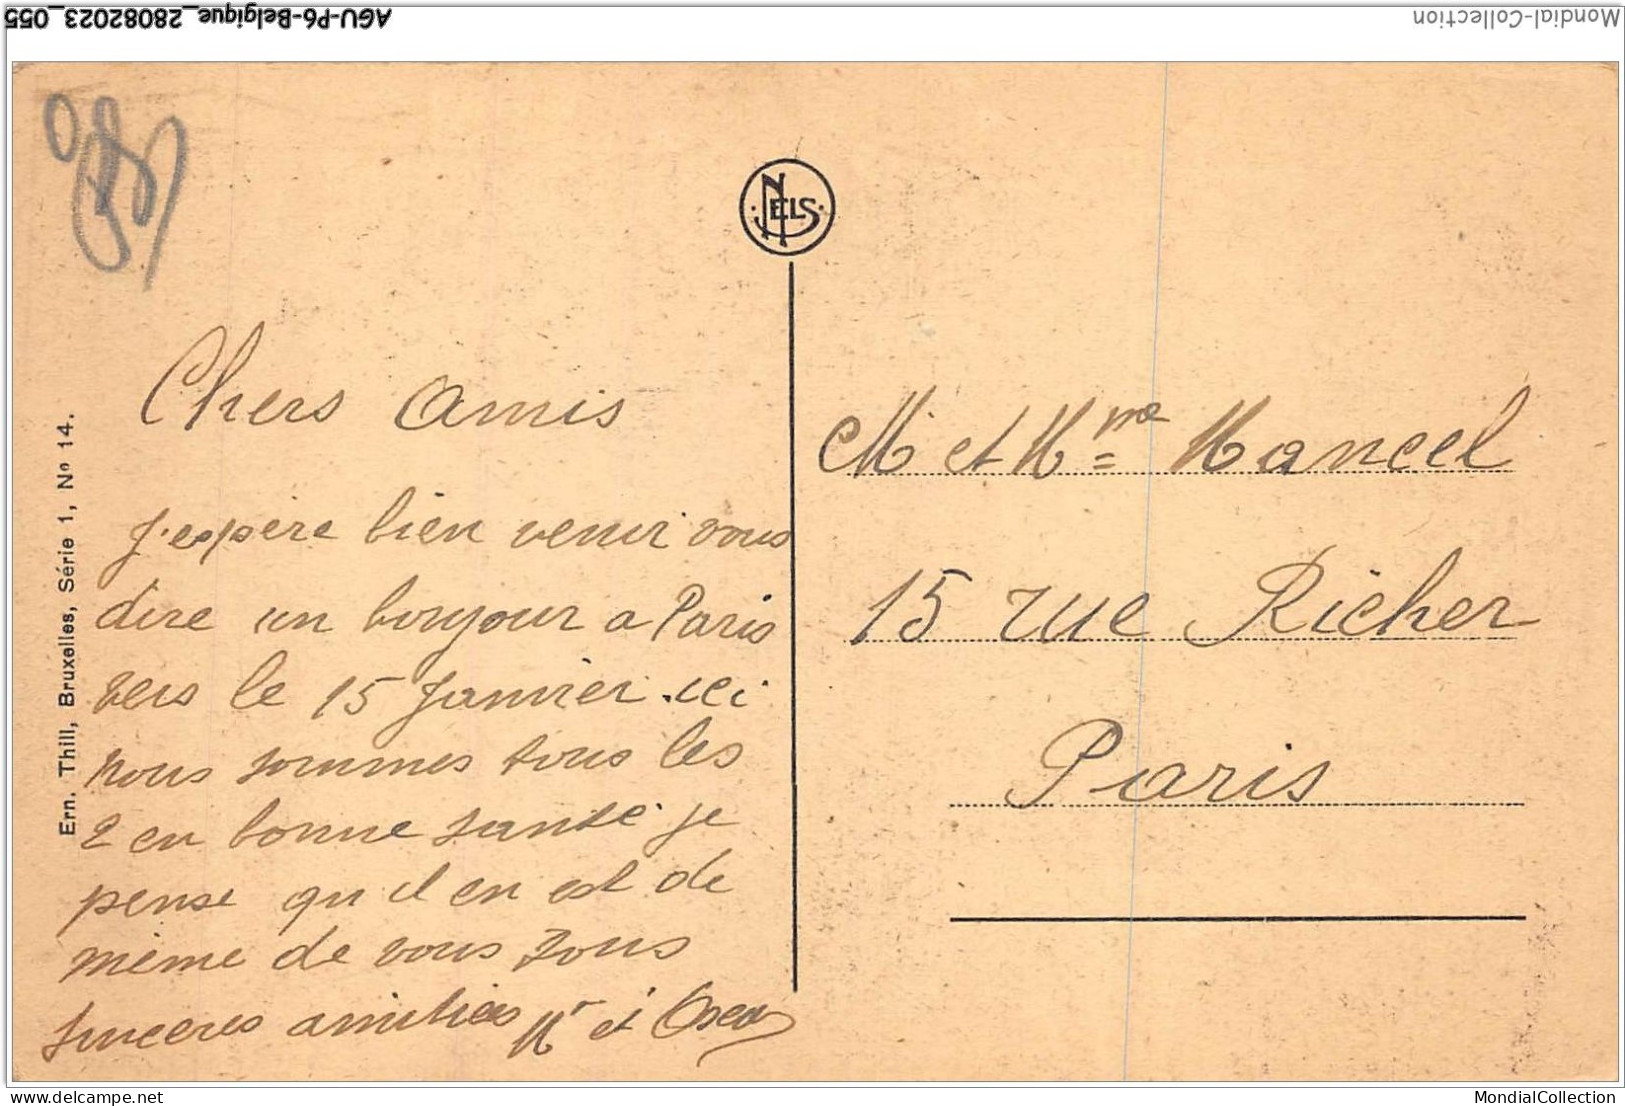 AGU-P6-Belgique_28082023_055
Mondial-Collection
NELS
Ern. Thill, Bruxelles, Série 1, No 14.
Chers amis
j'espère bien venir vous
dire un bonjour a Paris
vers le 15 Janvier. ici
nous sommes tous les
2 en bonne santé. je
pense qu il en est de
même de vous tous
sinceres amitiées Mr et
M et Mme Mancel
15 rue Richer
Paris
delcampe.net
MondialCollection